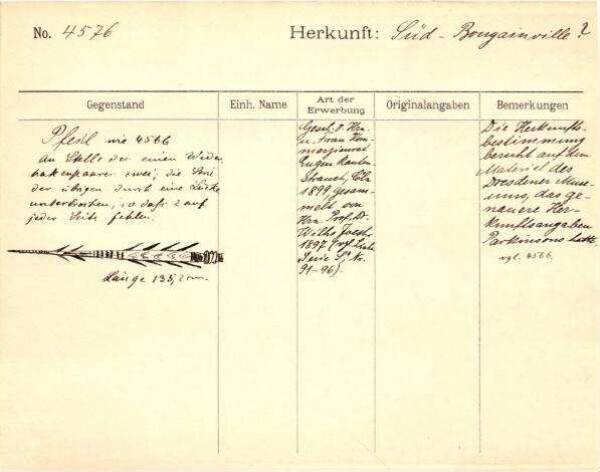 No. 4576
Herkunft: Süd-Bougainville?
Gegenstand
Einh. Name
Art der Erwerbung
Originalangaben
Bemerkungen
Pfeil wie 4566
An Stelle der einen Wider-
hakenpaare zwei; die
der übrigen durch eine Lücke
unterbrochen, so daß 2 auf
jeder Seite fehlen.
Länge 135,2 cm.
Gesch. v. Hrn.
u. Frau Kom-
merzienrat
Eugen Rauten-
strauch, Cöln
1899, gesam-
melt von
Hrn. Prof. Dr.
Wilh. Joest
1897 (vgl. Liste
Seite 5, Nr.
91-96).
Die Herkunfts-
bestimmung
beruht auf dem
Material des
Dresdener Muse-
ums, das ge-
nauere Her-
kunftsangaben
Parkinsons hatte.
vgl. 4566.